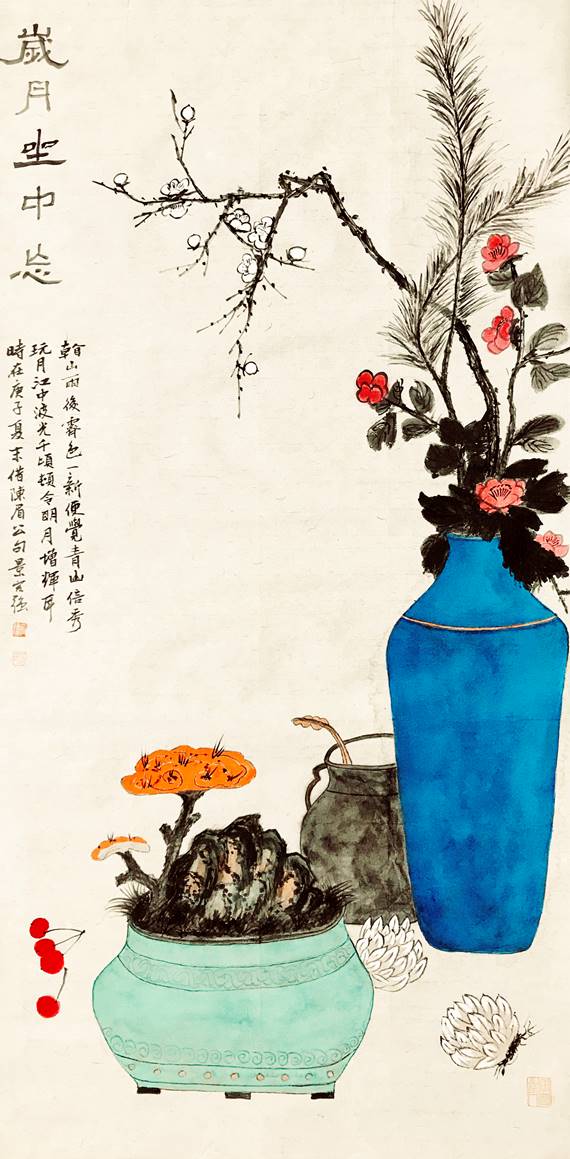 歲月坐中忘
看山雨後霽色一新便覺青山倍秀
玩月江中波光千頃頓令明月增輝耳
時在庚子夏末借陳眉公句景強